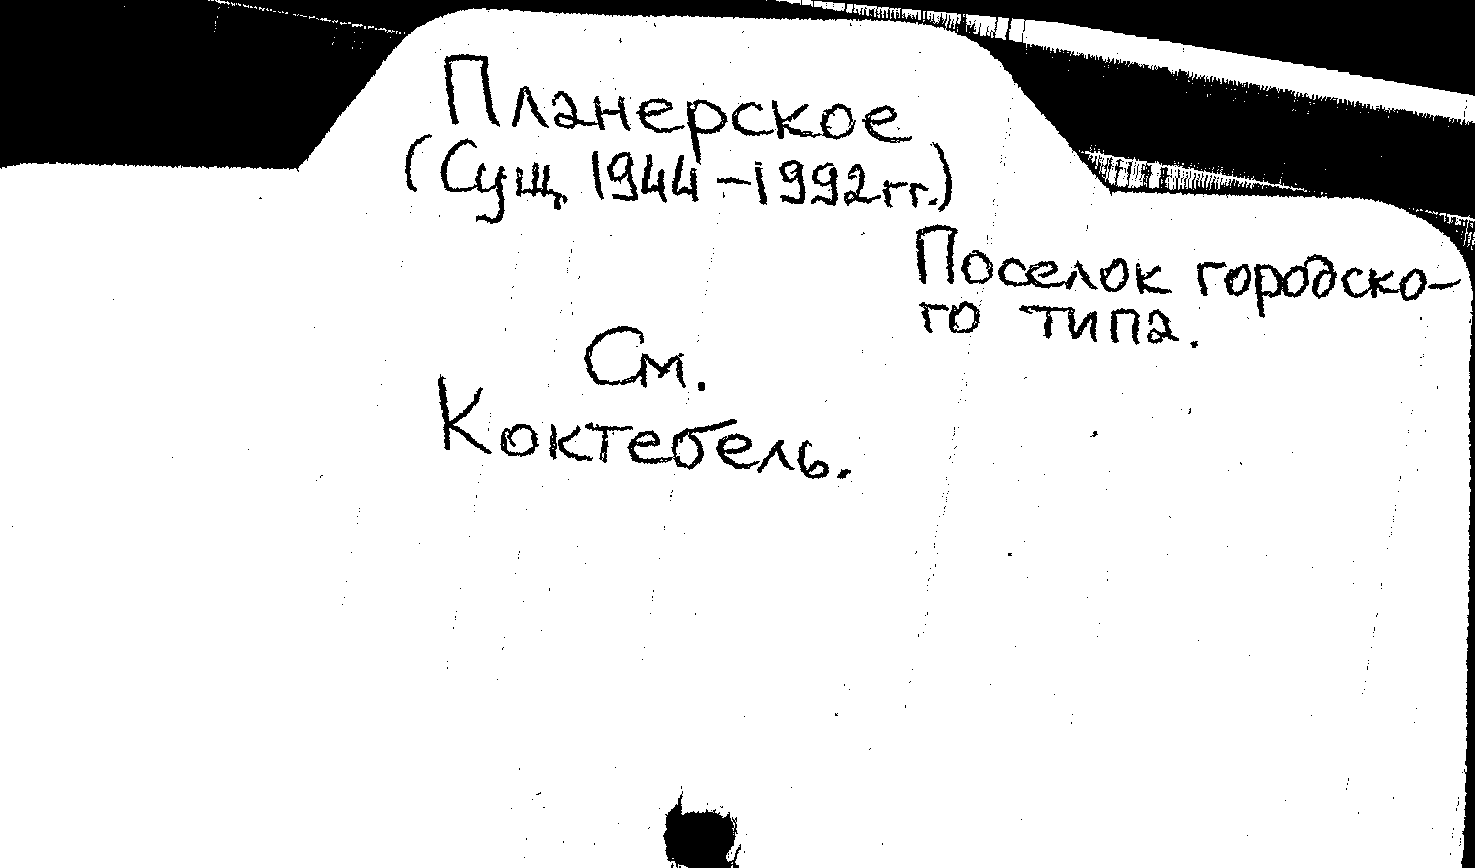 Планерское
(Сущ. 1944-1992 гг.)
Поселок городско-
го типа.
См.
Коктебель.